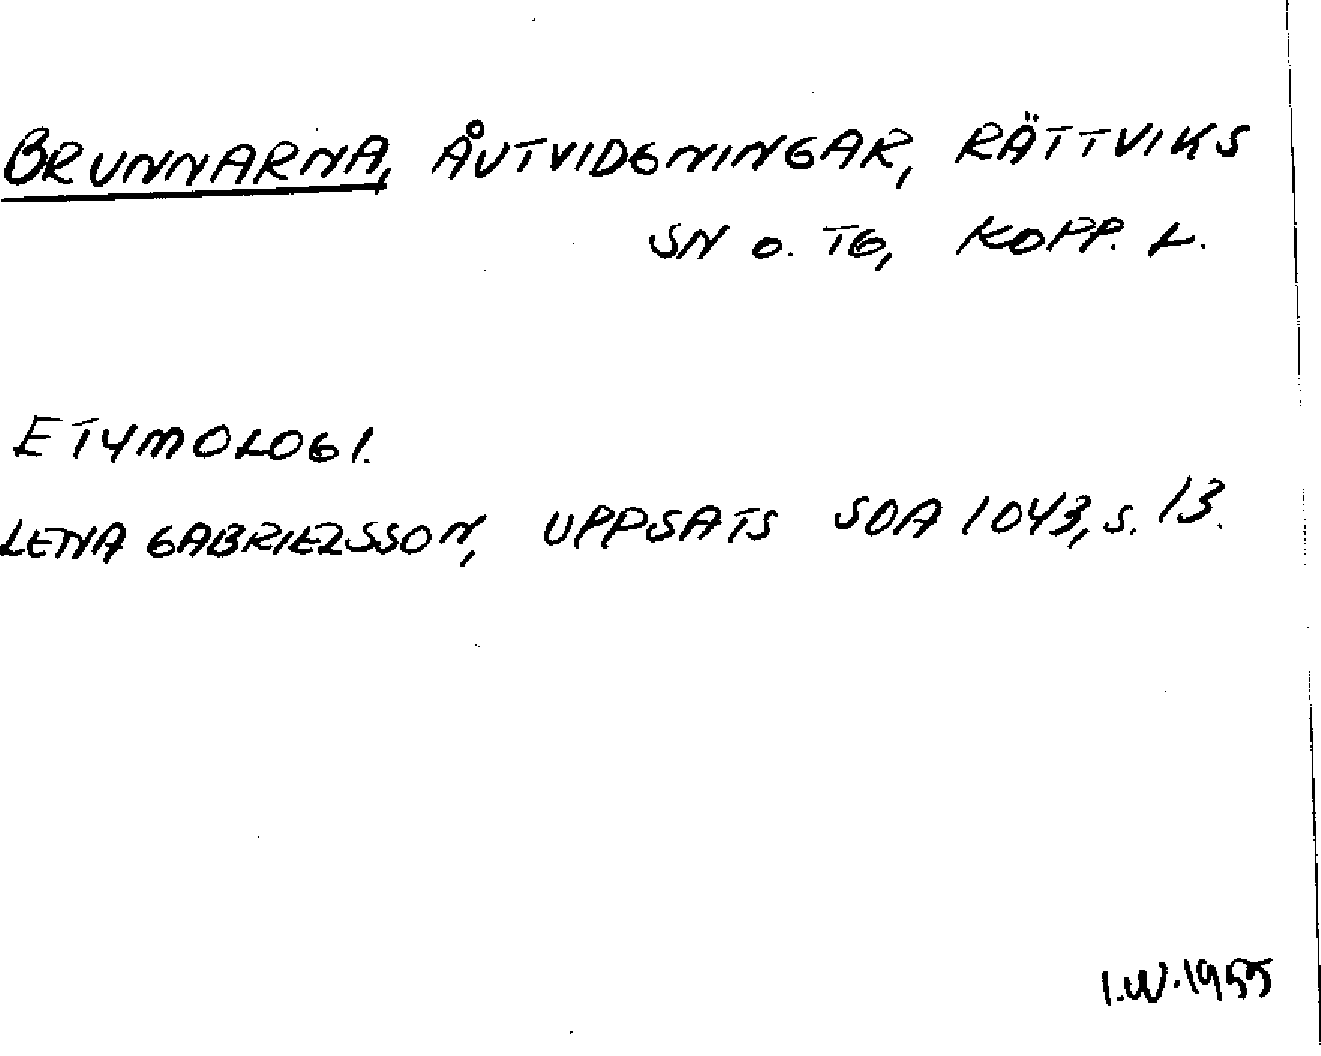 BRUNNARNA, ÅUTVIDGNINGAR, RÄTTVIKS
SN O. TG, KOPP. L.
ETYMOLOGI.
LENA GABRIELSSON, UPPSATS SOA 1043, S. 13.
I.W. 1955